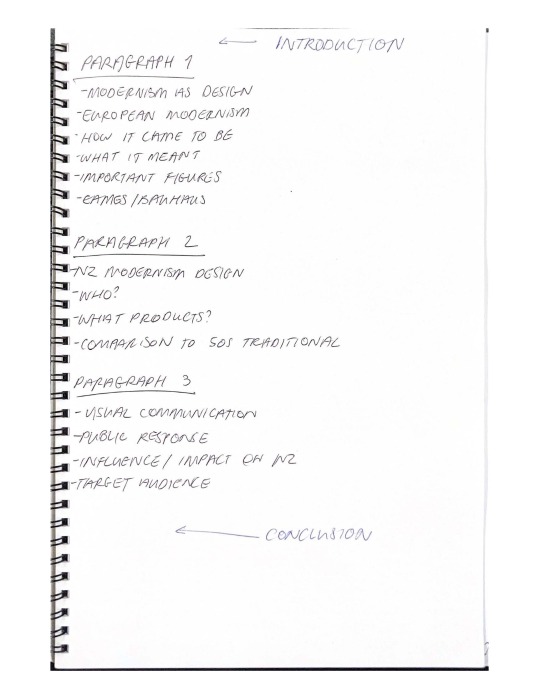 ← INTRODUCTION
PARAGRAPH 1
-MODERNISM AS DESIGN
-EUROPEAN MODERNISM
-HOW IT CAME TO BE
-WHAT IT MEANT
-IMPORTANT FIGURES
-EAMES/BAUHAUS
PARAGRAPH 2
-NZ MODERNISM DESIGN
-WHO?
-WHAT PRODUCTS?
-COMPARISON TO 50S TRADITIONAL
PARAGRAPH 3
-VISUAL COMMUNICATION
-PUBLIC RESPONSE
-INFLUENCE/IMPACT ON NZ
-TARGET AUDIENCE
← CONCLUSION